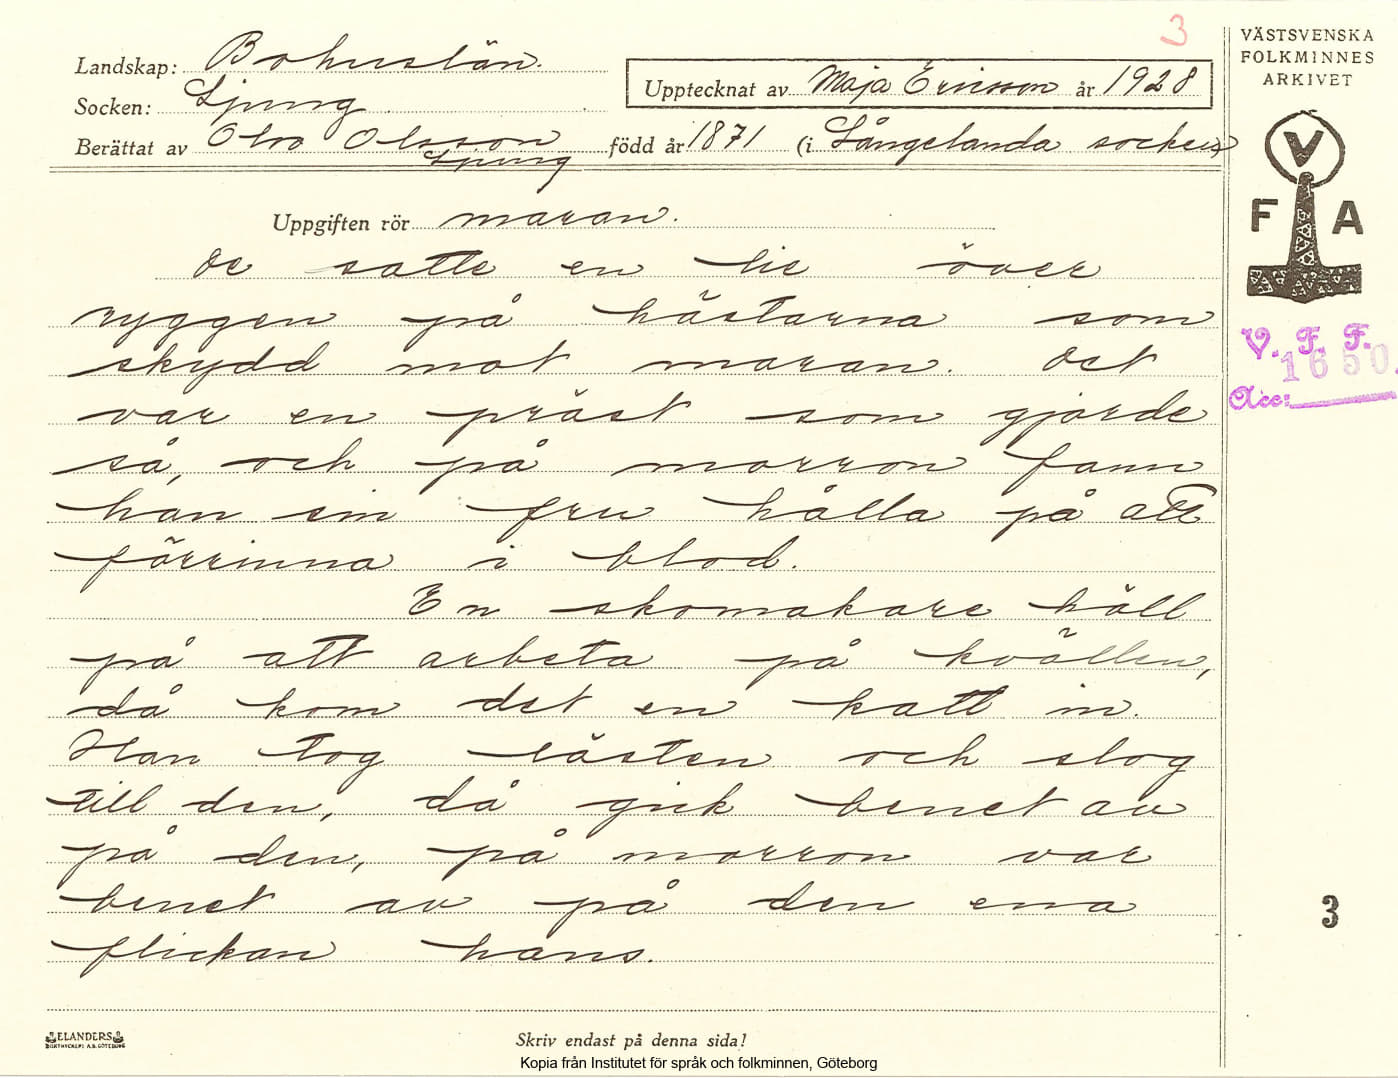 3
VÄSTSVENSKA
FOLKMINNES
ARKIVET
Landskap: Bohuslän.
Upptecknat av Maja Ericsson år 1928
Socken: Ljung
Berättat av Olro Olsson född år 1871 (i Långelanda socken)
Ljung
V
F A
Uppgiften rör maran.
De satte en lie över
ryggen på hästarna som
skydd mot maran. Det
V. F. F. 1650.
Acc:
var en präst som gjorde
så, och på morron fann
han sin fru hålla på att
förrinna i blod.
En skomakare höll
på att arbeta på kvällen,
då kom det en katt in.
Han tog lästen och slog
till den, då gick benet av
på den, på morron var
benet av på den ena
3
flickan hans.
ELANDERS
BOKTRYCKERI A.B. GÖTEBORG
Skriv endast på denna sida!
Kopia från Institutet för språk och folkminnen, Göteborg